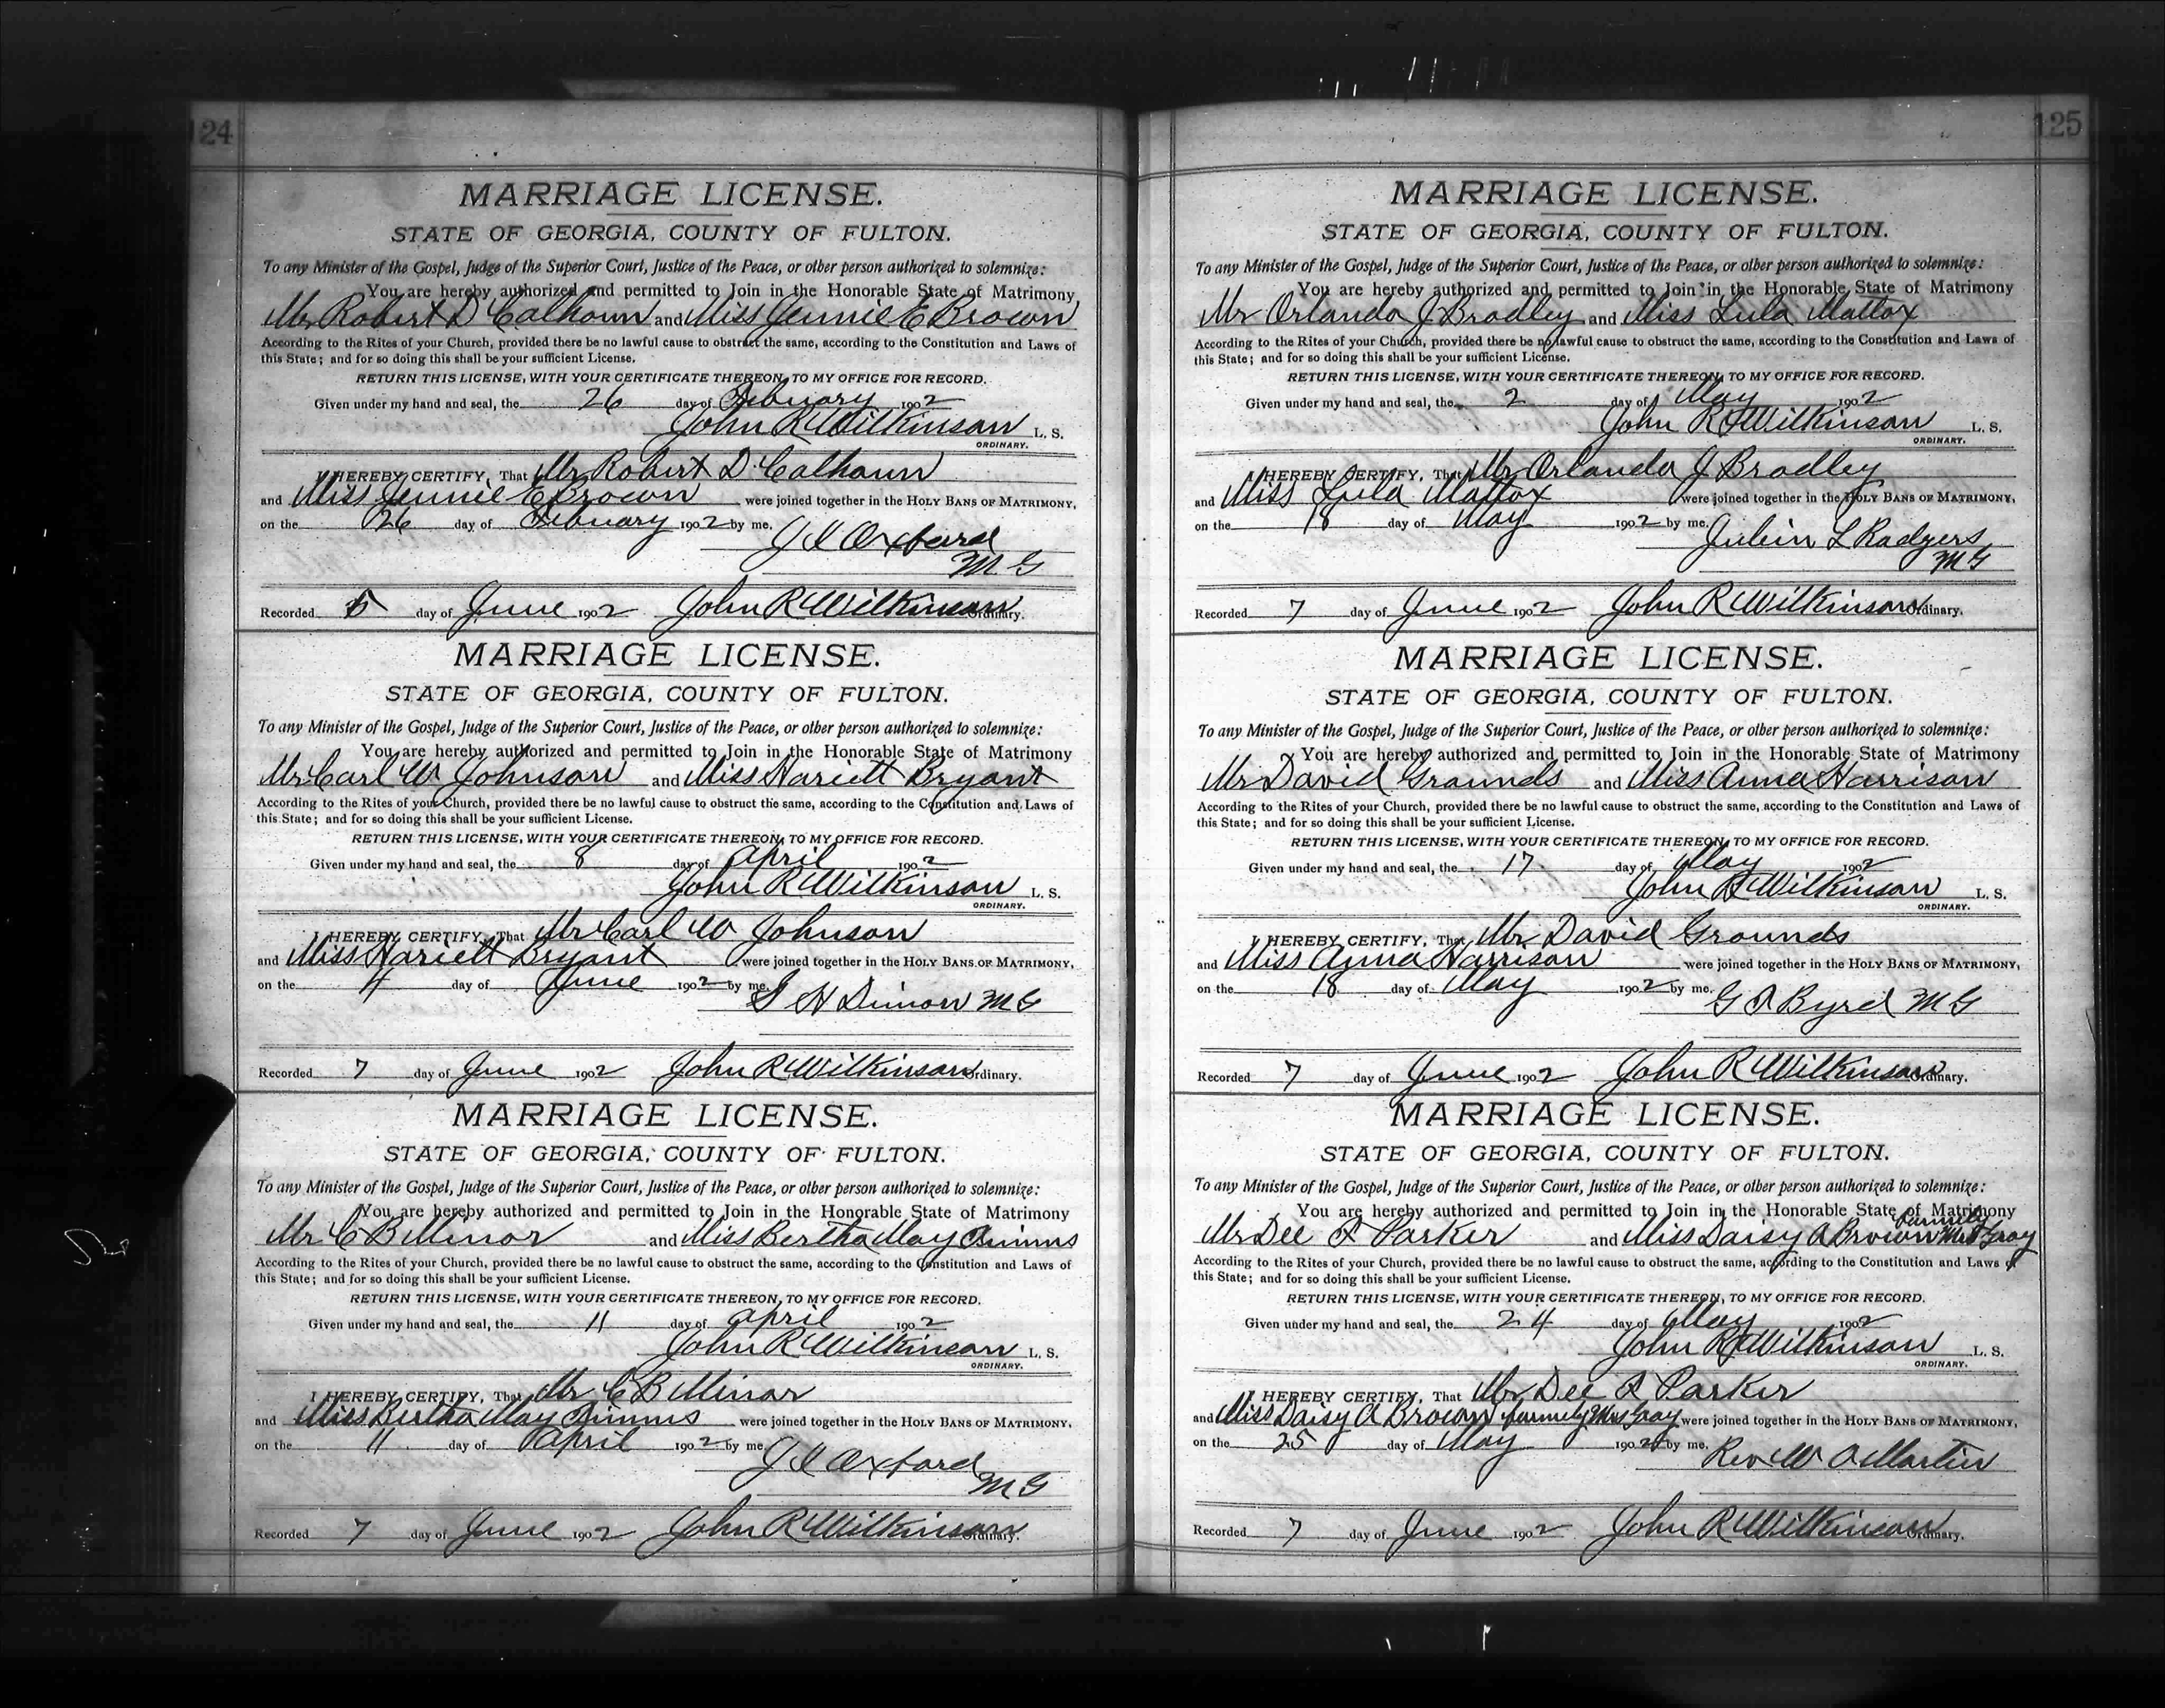 124
MARRIAGE LICENSE.
STATE OF GEORGIA, COUNTY OF FULTON.
To any Minister of the Gospel, Judge of the Superior Court, Justice of the Peace, or other person authorized to solemnize:
You are hereby authorized and permitted to Join in the Honorable State of Matrimony
Mr Robert D Calhoun and Miss Jennie E Brown
According to the Rites of your Church, provided there be no lawful cause to obstract the same, according to the Constitution and Laws of
this State; and for so doing this shall be your sufficient License.
RETURN THIS LICENSE, WITH YOUR CERTIFICATE THEREON, TO MY OFFICE FOR RECORD.
Given under my hand and seal, the 26 day of February 1902
John R Wilkinson L. S.
ORDINARY.
I HEREBY CERTIFY, That Mr Robert D Calhoun
and Miss Jennie E Brown were joined together in the HOLY BANS OF MATRIMONY,
on the 26 day of February 1902 by me.
J I Oxford
M G
Recorded 5 day of June 1902 John R Wilkinson Ordinary.
MARRIAGE LICENSE.
STATE OF GEORGIA, COUNTY OF FULTON.
To any Minister of the Gospel, Judge of the Superior Court, Justice of the Peace, or other person authorized to solemnize:
You are hereby authorized and permitted to Join in the Honorable State of Matrimony
Mr Carl W Johnson and Miss Hariett Bryant
According to the Rites of your Church, provided there be no lawful cause to obstruct the same, according to the Constitution and Laws of
this State; and for so doing this shall be your sufficient License.
RETURN THIS LICENSE, WITH YOUR CERTIFICATE THEREON, TO MY OFFICE FOR RECORD.
Given under my hand and seal, the 8 day of April 1902
John R Wilkinson L. S.
ORDINARY.
I HEREBY CERTIFY, That Mr Carl W Johnson
and Miss Hariett Bryant were joined together in the HOLY BANS OF MATRIMONY,
on the 4 day of June 1902 by me.
S H Dimon M G
Recorded 7 day of June 1902 John R Wilkinson Ordinary.
MARRIAGE LICENSE.
STATE OF GEORGIA, COUNTY OF FULTON.
To any Minister of the Gospel, Judge of the Superior Court, Justice of the Peace, or other person authorized to solemnize:
You are hereby authorized and permitted to Join in the Honorable State of Matrimony
Mr C B Minor and Miss Bertha May Simms
According to the Rites of your Church, provided there be no lawful cause to obstruct the same, according to the Constitution and Laws of
this State; and for so doing this shall be your sufficient License.
RETURN THIS LICENSE, WITH YOUR CERTIFICATE THEREON, TO MY OFFICE FOR RECORD.
Given under my hand and seal, the 11 day of April 1902
John R Wilkinson L. S.
ORDINARY.
I HEREBY CERTIFY, That Mr C B Minor
and Miss Bertha May Simms were joined together in the HOLY BANS OF MATRIMONY,
on the 11 day of April 1902 by me.
J I Oxford
M G
Recorded 7 day of June 1902 John R Wilkinson Ordinary.
125
MARRIAGE LICENSE.
STATE OF GEORGIA, COUNTY OF FULTON.
To any Minister of the Gospel, Judge of the Superior Court, Justice of the Peace, or other person authorized to solemnize:
You are hereby authorized and permitted to Join in the Honorable State of Matrimony
Mr Orlando J Bradley and Miss Lula Mattox
According to the Rites of your Church, provided there be no lawful cause to obstruct the same, according to the Constitution and Laws of
this State; and for so doing this shall be your sufficient License.
RETURN THIS LICENSE, WITH YOUR CERTIFICATE THEREON, TO MY OFFICE FOR RECORD.
Given under my hand and seal, the 2 day of May 1902
John R Wilkinson L. S.
ORDINARY.
I HEREBY CERTIFY, That Mr Orlando J Bradley
and Miss Lula Mattox were joined together in the HOLY BANS OF MATRIMONY,
on the 18 day of May 1902 by me.
Julien L Rodgers
M G
Recorded 7 day of June 1902 John R Wilkinson Ordinary.
MARRIAGE LICENSE.
STATE OF GEORGIA, COUNTY OF FULTON.
To any Minister of the Gospel, Judge of the Superior Court, Justice of the Peace, or other person authorized to solemnize:
You are hereby authorized and permitted to Join in the Honorable State of Matrimony
Mr David Grounds and Miss Anna Harrison
According to the Rites of your Church, provided there be no lawful cause to obstruct the same, according to the Constitution and Laws of
this State; and for so doing this shall be your sufficient License.
RETURN THIS LICENSE, WITH YOUR CERTIFICATE THEREON, TO MY OFFICE FOR RECORD.
Given under my hand and seal, the 17 day of May 1902
John R Wilkinson L. S.
ORDINARY.
I HEREBY CERTIFY, That Mr David Grounds
and Miss Anna Harrison were joined together in the HOLY BANS OF MATRIMONY,
on the 18 day of May 1902 by me.
G A Byrd M G
Recorded 7 day of June 1902 John R Wilkinson Ordinary.
MARRIAGE LICENSE.
STATE OF GEORGIA, COUNTY OF FULTON.
To any Minister of the Gospel, Judge of the Superior Court, Justice of the Peace, or other person authorized to solemnize:
You are hereby authorized and permitted to Join in the Honorable State of Matrimony
Mr Dee A Parker and Miss Daisy A Brown formerly Mrs Gray
According to the Rites of your Church, provided there be no lawful cause to obstruct the same, according to the Constitution and Laws of
this State; and for so doing this shall be your sufficient License.
RETURN THIS LICENSE, WITH YOUR CERTIFICATE THEREON, TO MY OFFICE FOR RECORD.
Given under my hand and seal, the 24 day of May 1902
John R Wilkinson L. S.
ORDINARY.
I HEREBY CERTIFY, That Mr Dee A Parker
and Miss Daisy A Brown formerly Mrs Gray were joined together in the HOLY BANS OF MATRIMONY,
on the 25 day of May 1902 by me.
Rev W A Martin
Recorded 7 day of June 1902 John R Wilkinson Ordinary.